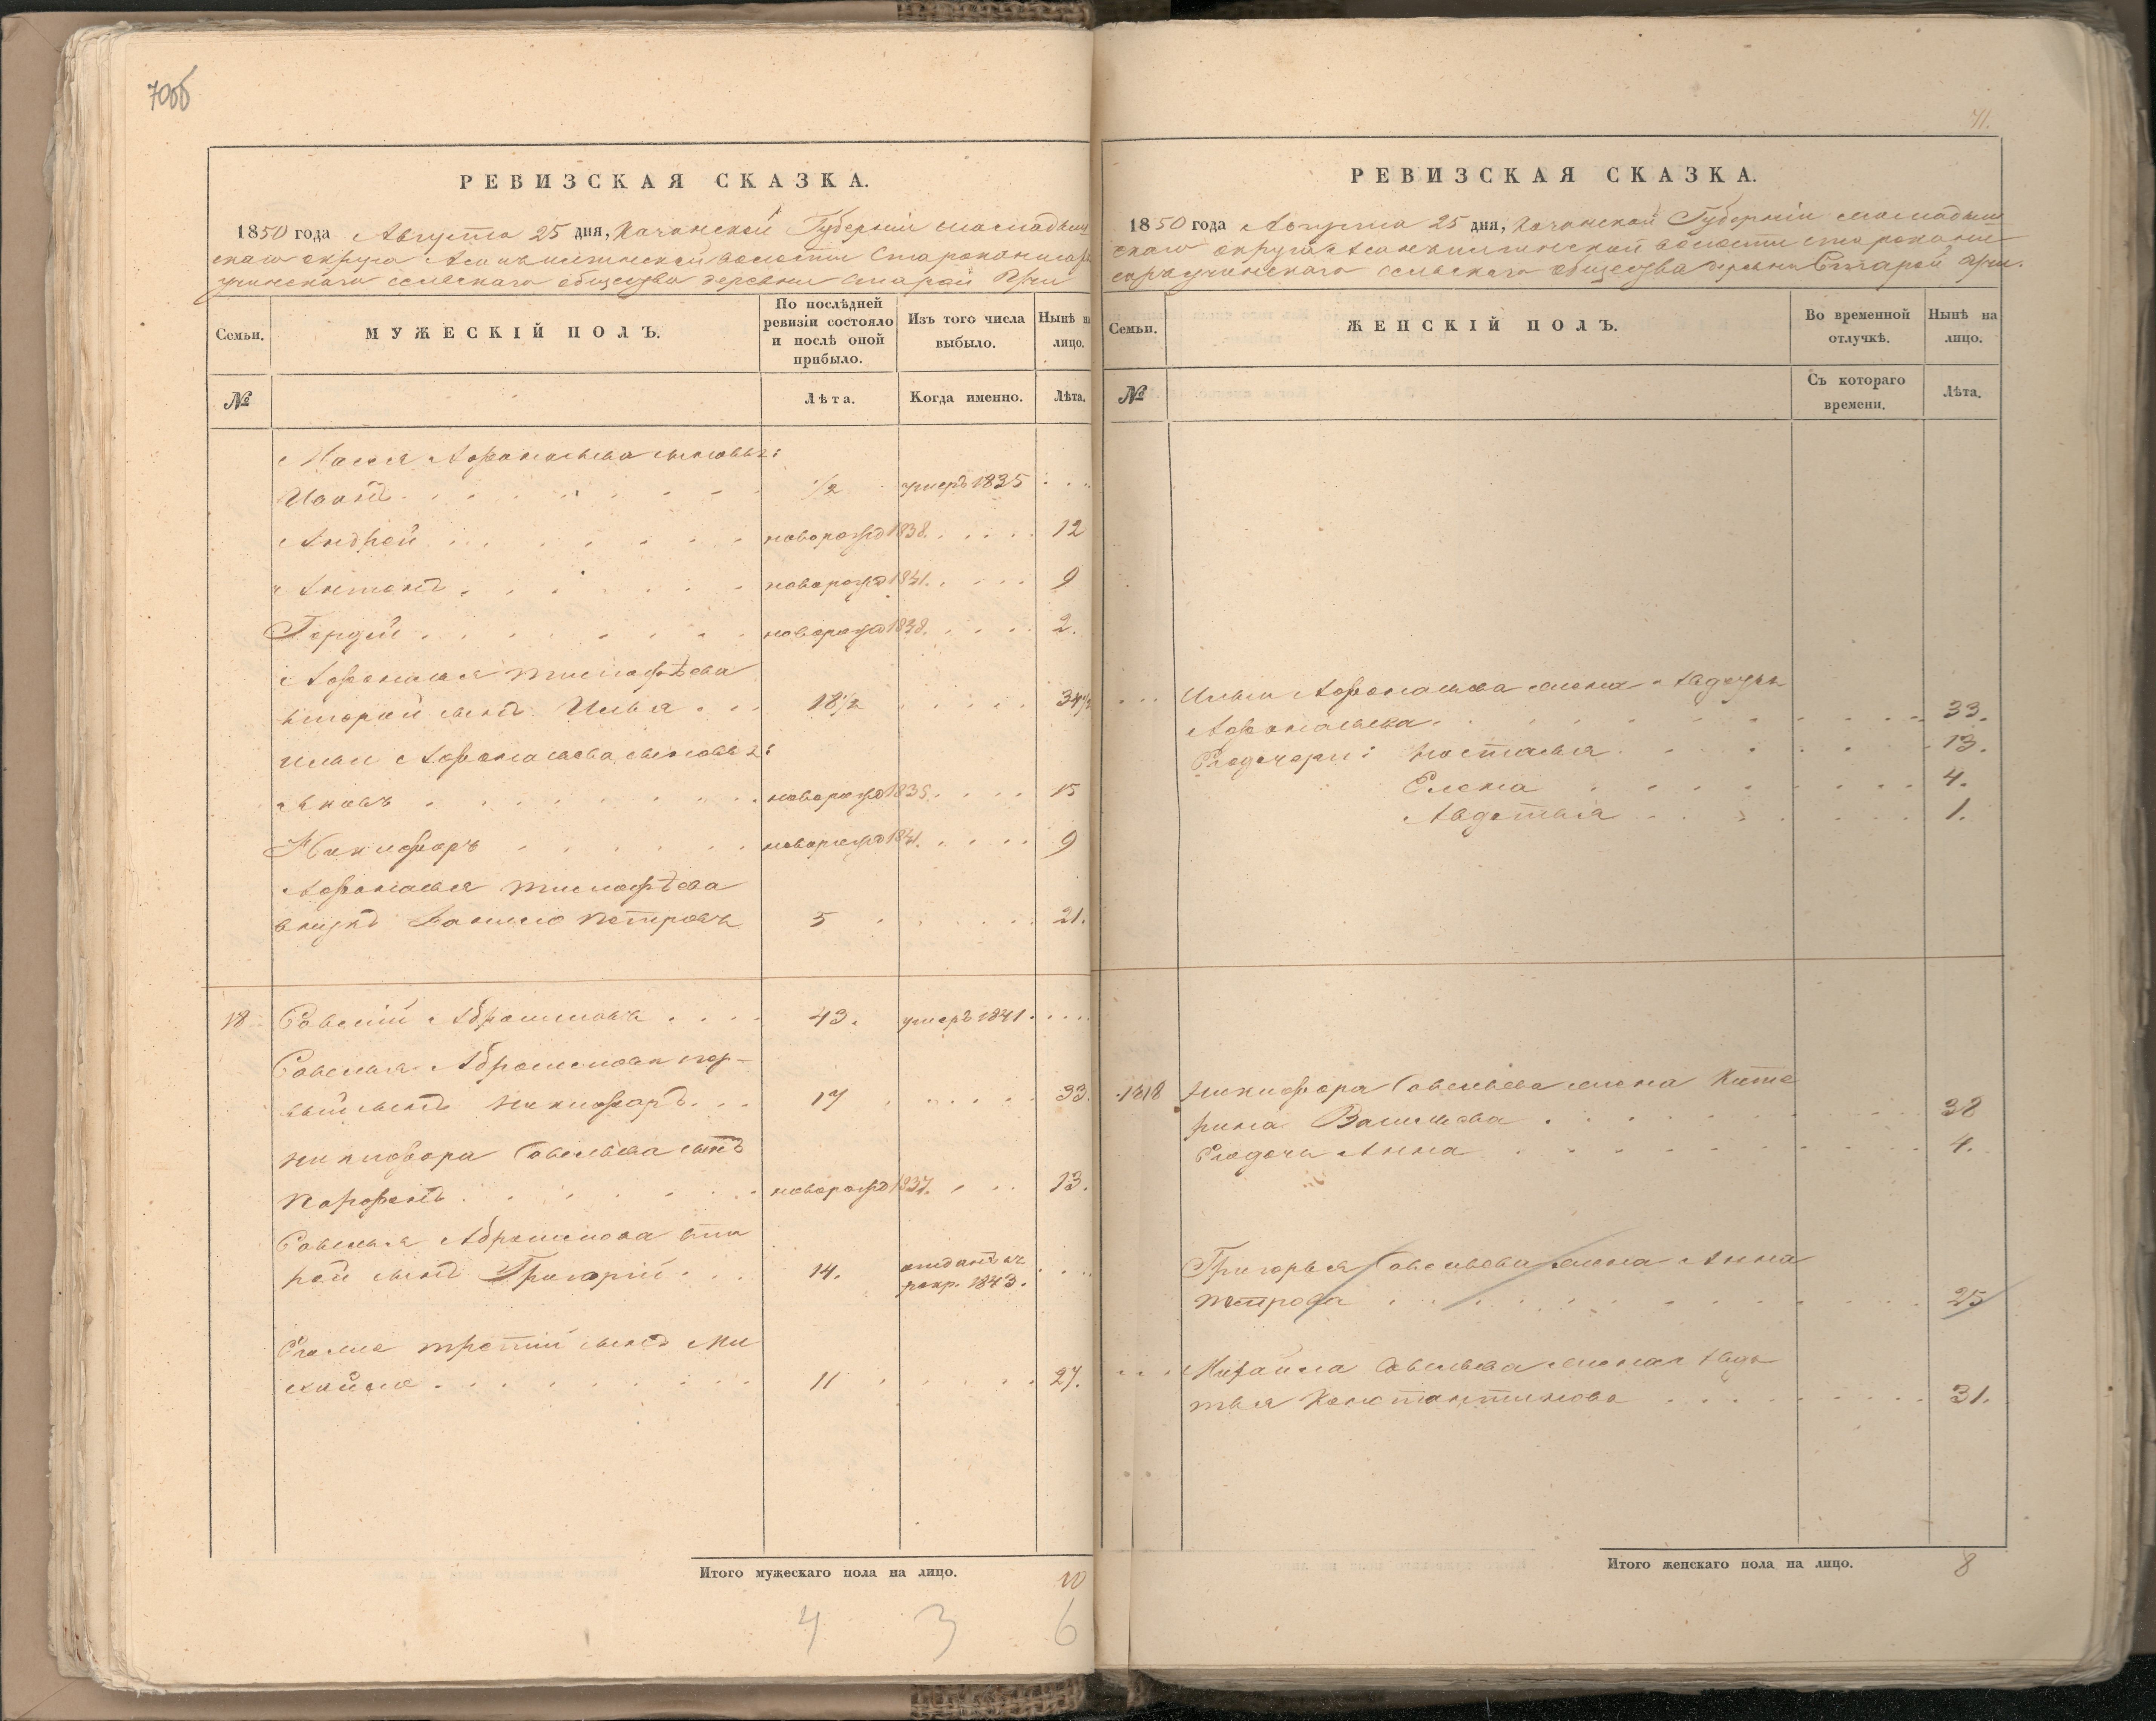 70об
РЕВИЗСКАЯ СКАЗКА.
1850 года Августа 25 дня, Казанской Губернии Мамадыш
скаго округа волости
сельскаго общества деревни Старой
Семьи.
МУЖЕСКІЙ ПОЛЪ.
По послѣдней ревизіи состояло и послѣ оной прибыло.
Изъ того числа выбыло.
Нынѣ на лицо.
№
Лѣта.
Когда именно.
Лѣта.
Афанасьева сыновья:
Иванъ 1/2 умеръ 1835
Андрей новорожд 1838. 12
Антонъ новорожд 1841. 9
Гордей новорожд 1838. 2.
Афанасья Тимофѣева
второй сынъ Илья 18 1/2 34 1/2
Ильи Афанасьева сыновья:
Яковъ новорожд 1835. 15
Никифоръ новорожд 1841. 9
Афанасья Тимофѣева
внукъ Данило Петровъ 5 21.
18 Савелій Абрамовъ 43. умеръ 1841.
Савелья Абрамова пер-
вый сынъ Никифоръ 17 33.
Никифора Савельева сынъ
Парфенъ новорожд 1837. 13.
Савелья Абрамова вто
рой сынъ Григорій 14. отданъ въ рекр. 1843.
Его же третий сынъ Ми
хайло 11 27.
Итого мужескаго пола на лицо. 10
4 3 6
71.
РЕВИЗСКАЯ СКАЗКА.
1850 года Августа 25 дня, Казанской Губернии Мамадыш
скаго округа волости
сельскаго общества деревни Старой
Семьи.
ЖЕНСКІЙ ПОЛЪ.
Во временной отлучкѣ.
Нынѣ на лицо.
№
Съ котораго времени.
Лѣта.
Ильи Афанасьева жена
Афанасьева 33.
Его дочери: Настасья 13.
Елена 4.
Авдотья 1.
18 Никифора Савельева жена Кате
рина Васильева 38
Его дочь Анна 4.
Григорья Савельева жена Анна
Петрова 25
Михайла Савельева жена Авдо
тья Константинова 31.
Итого женскаго пола на лицо. 8